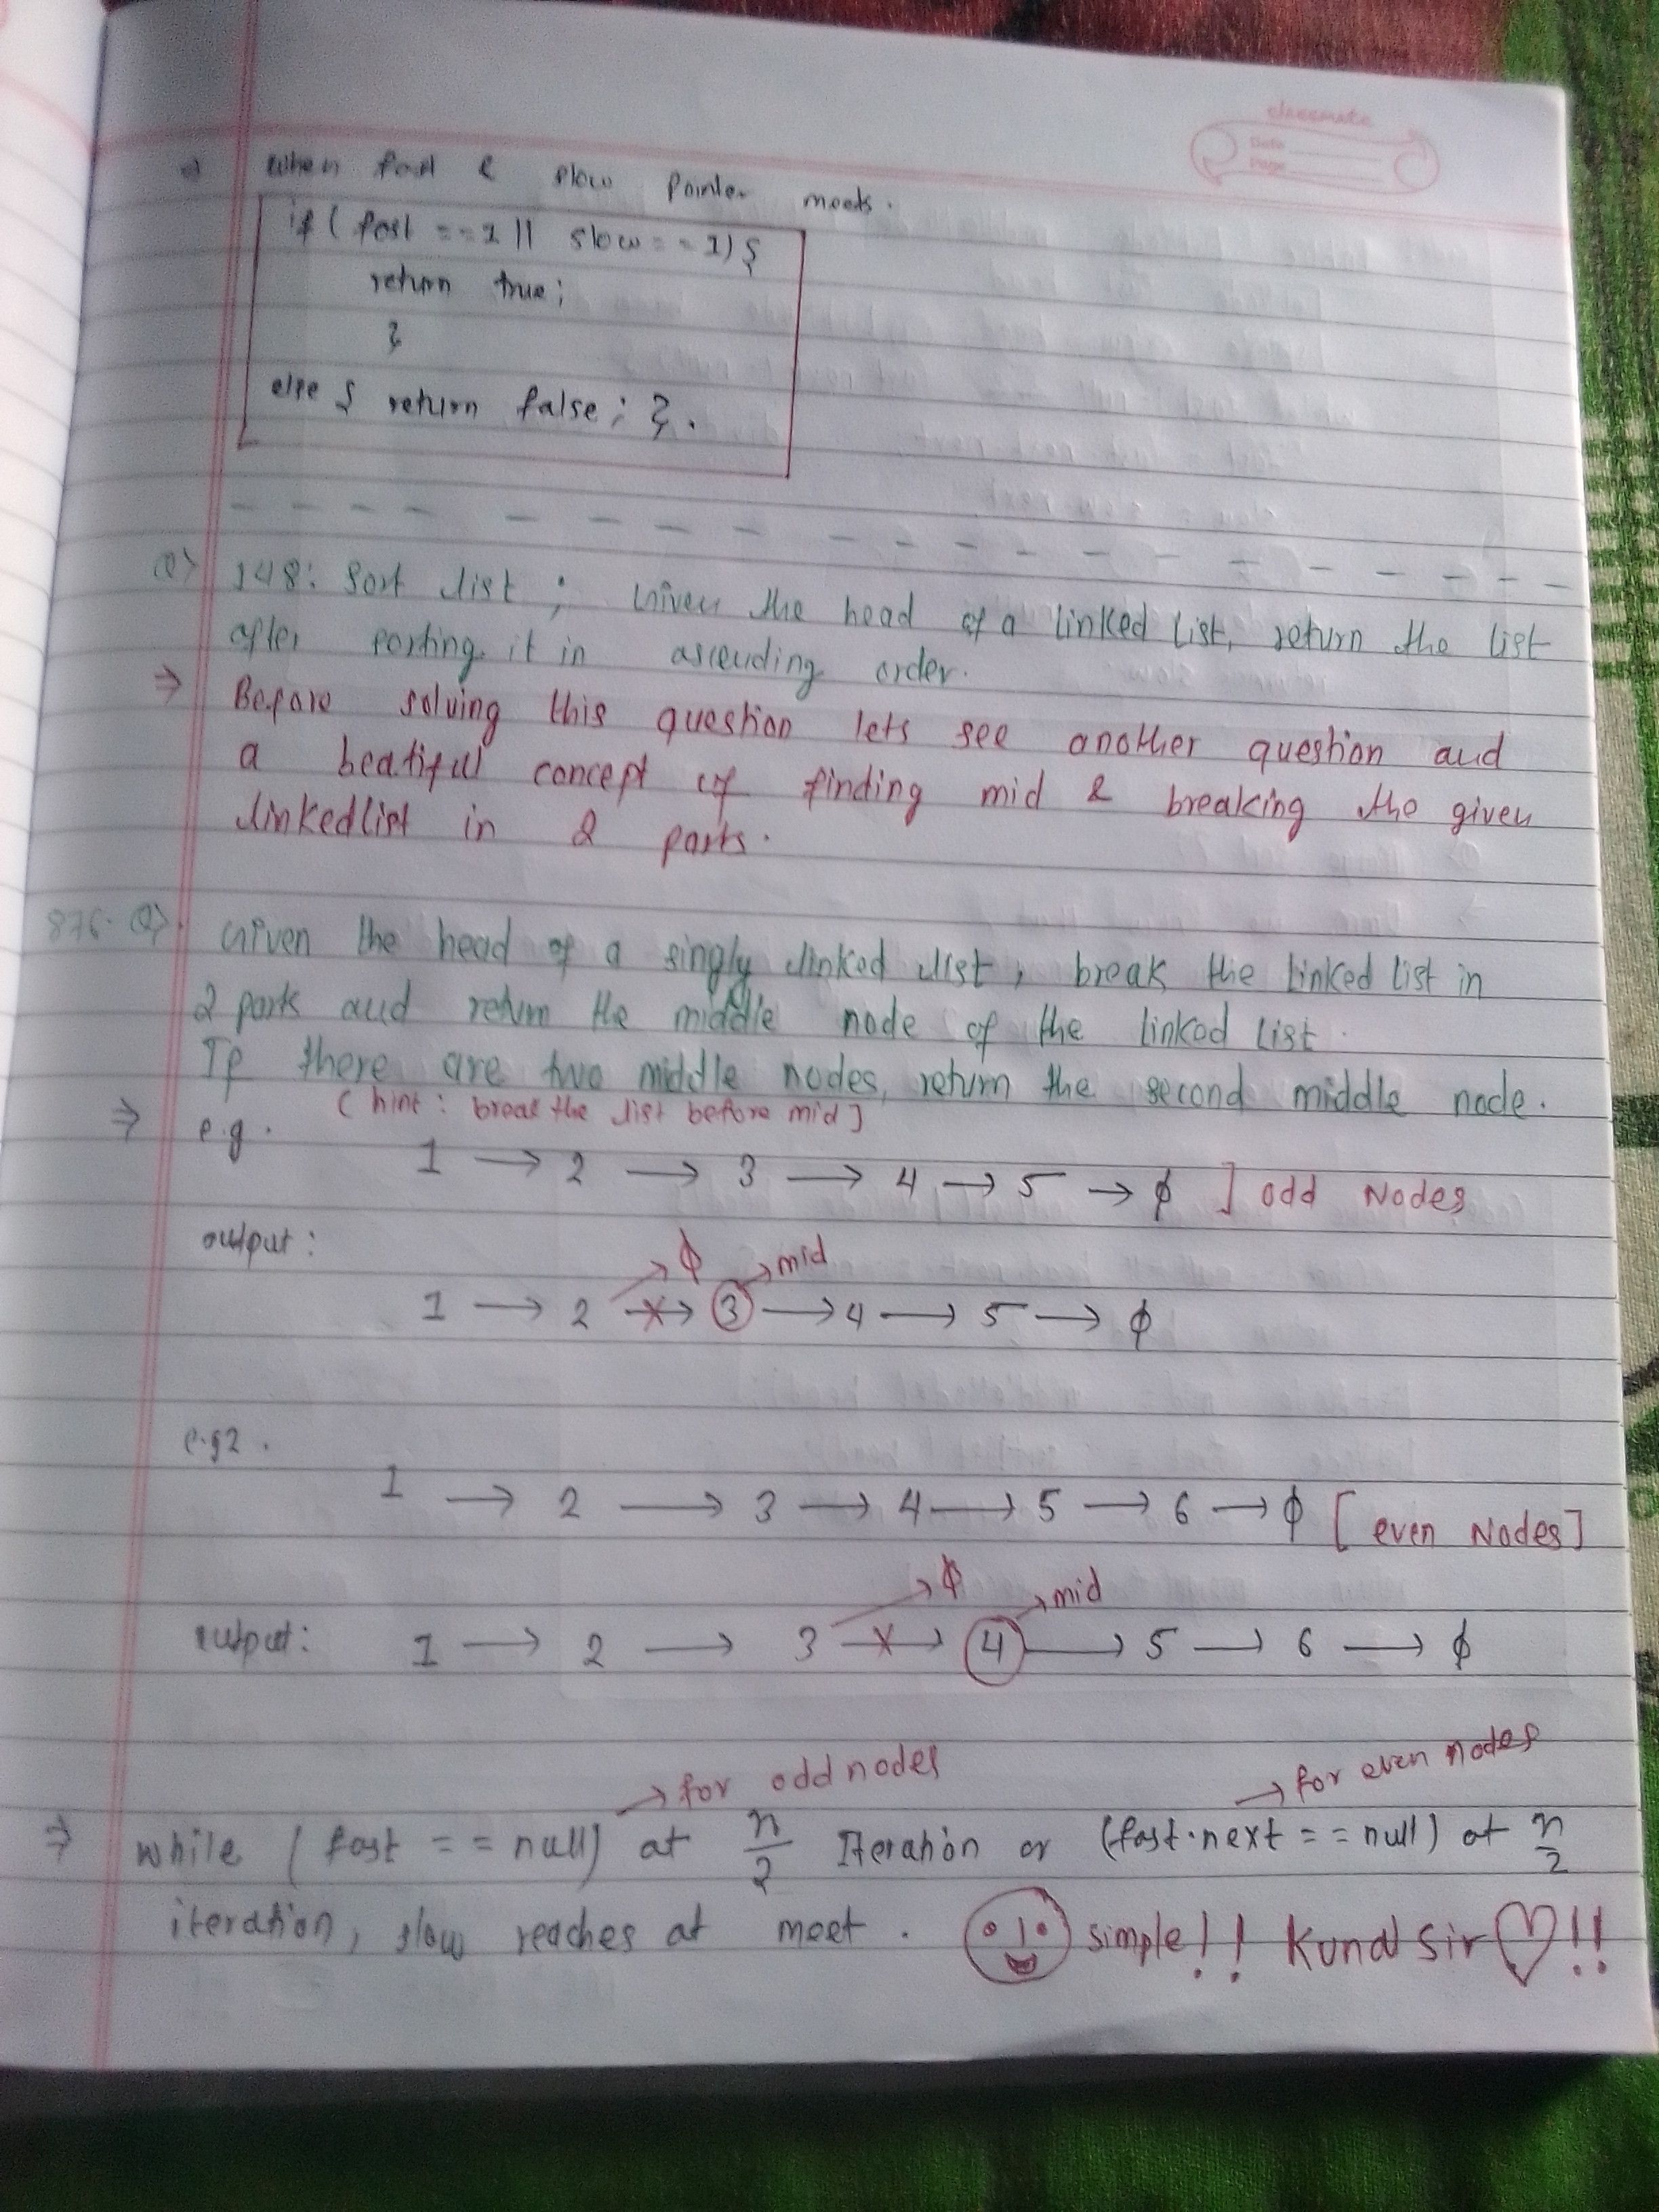 classmate
Date
Page
⇒ when fast & slow pointer meets.
if ( fast == 1 || slow == 1) {
return true;
}
else { return false; }.
Q> 148: Sort list ; Given the head of a linked list, return the list
after sorting it in ascending order.
⇒ Before solving this question lets see another question and
a beatiful concept of finding mid & breaking the given
linkedlist in 2 parts.
876. Q> Given the head of a singly linked list, break the linked list in
2 parts and return the middle node of the linked list.
If there are two middle nodes, return the second middle node.
( hint : break the list before mid ]
⇒ e.g.
1 → 2 → 3 → 4 → 5 → ϕ ] odd Nodes
output :
ϕ mid
1 → 2 → 3 → 4 → 5 → ϕ
e.g2.
1 → 2 → 3 → 4 → 5 → 6 → ϕ [ even Nodes]
ϕ mid
output: 1 → 2 → 3 → 4 → 5 → 6 → ϕ
→ for odd nodes → for even nodes
⇒ while (fast == null) at n/2 Iteration or (fast.next == null) at n/2
iteration, slow reaches at meet . simple!! Kunal Sir ♡!!